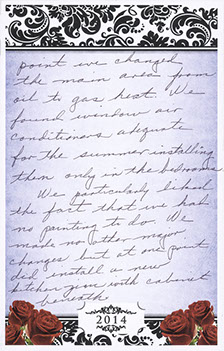 point we changed
the main area from
oil to gas heat. We
found window air
conditioners adequate
for the summer installing
them only in the bedrooms
We particularly liked
the fact that we had
no painting to do. We
made no other major
changes but at one point
did install a new
kitchen sink with cabinet
beneath
2014